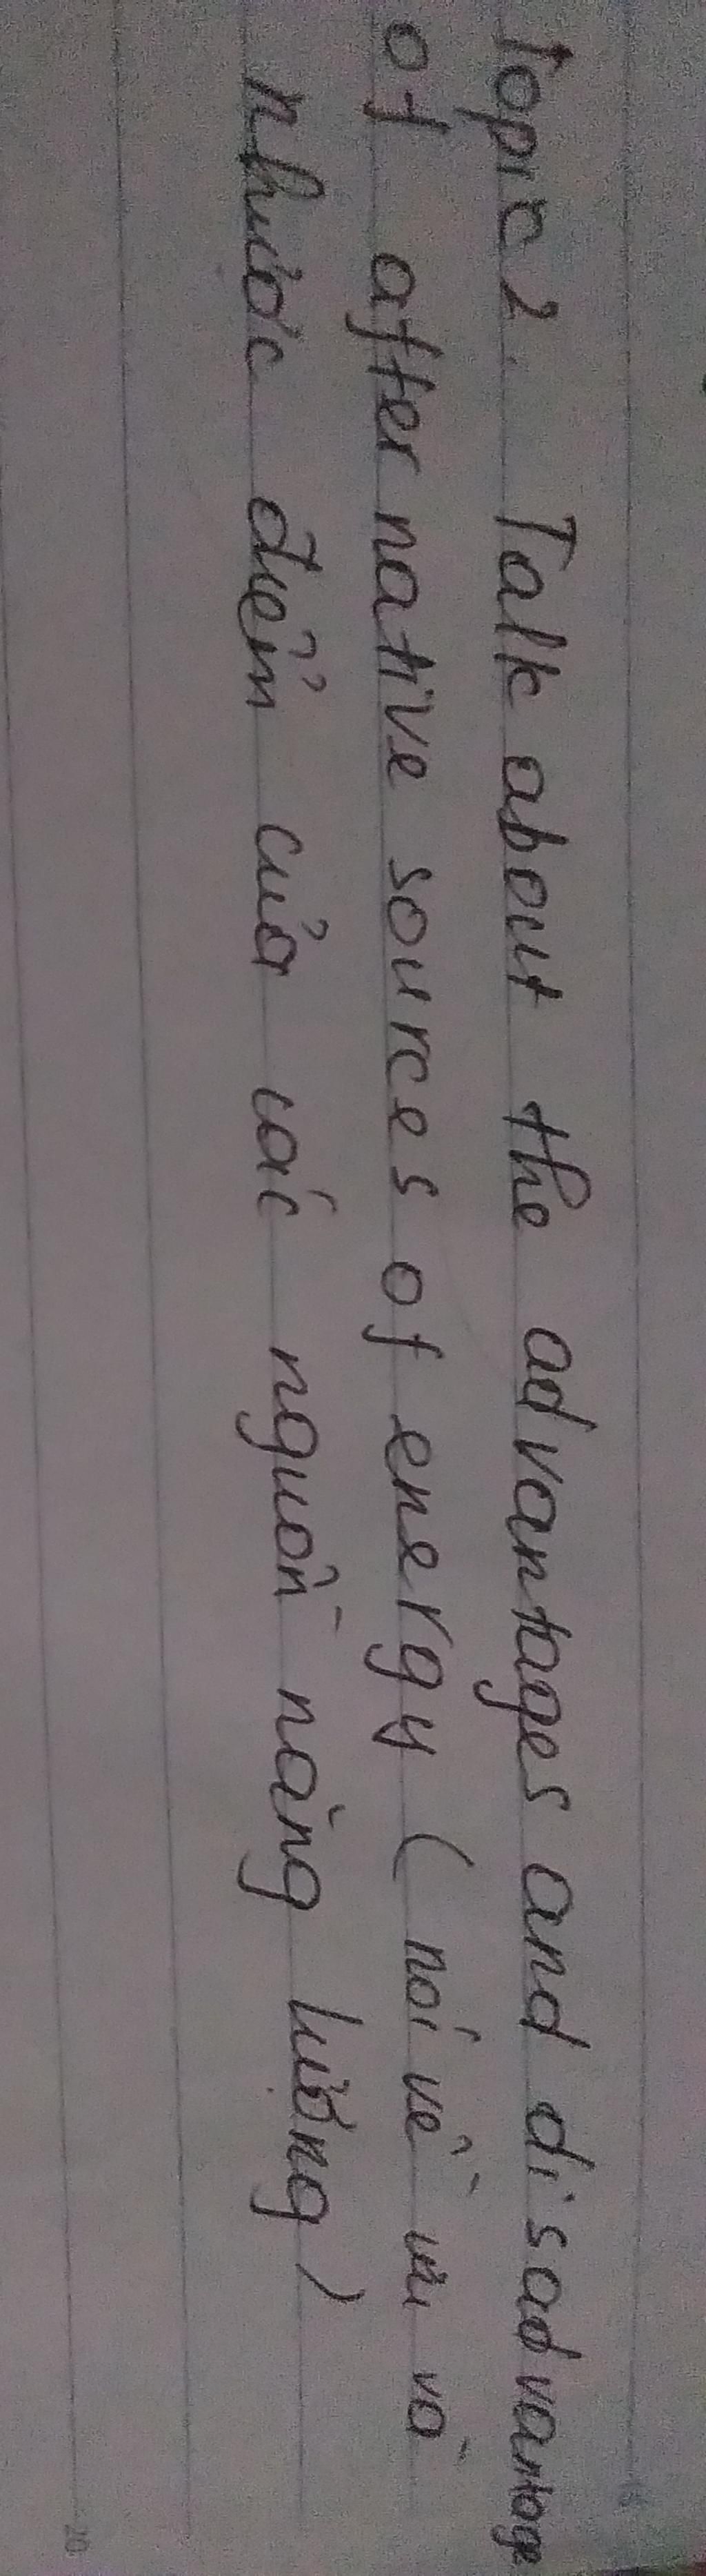 Topic 2. Talk about the advantages and disadvantage
of afternative sources of energy (nói về ưu và
nhược điểm của các nguồn năng lượng)